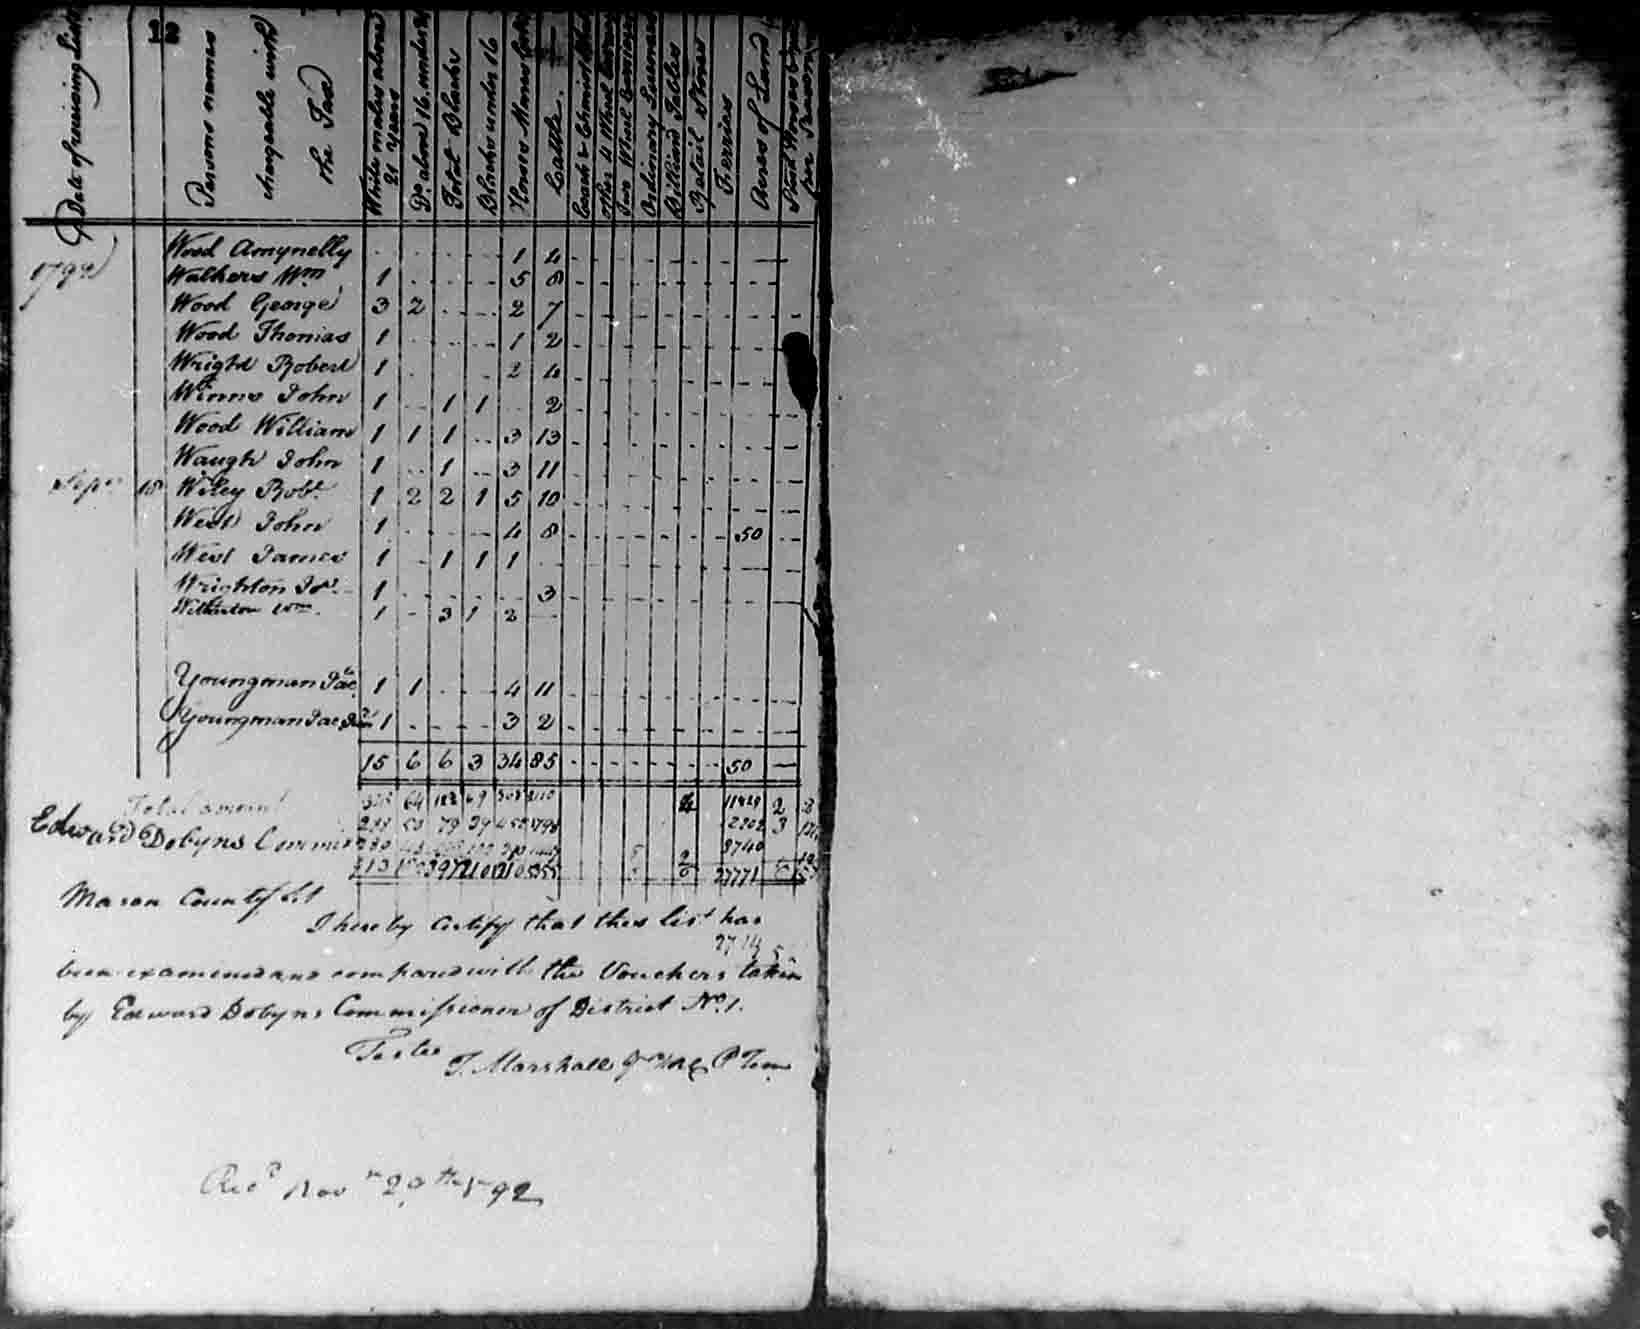 12
Date of receiving List
Persons names
chargeable with
the Tax
White males above
21 Years
Do. above 16 under 21
Total Blacks
Blacks under 16
Horses Mares Colts
Cattle.
other 4 Wheel
Two Wheel Carriages
Ordinary Licenses
Billiard Tables
Retail Stores
Ferries
Acres of Land
Stud Horses
per Season
1792
Wood Amynelly 1 4
Walkers Wm 1 5 8
Wood George 3 2 2 7
Wood Thomas 1 1 2
Wright Robert 1 2 4
Winns John 1 1 1 2
Wood William 1 1 1 3 13
Waugh John 1 1 3 11
Sepr 18 Wiley Robt 1 2 2 1 5 10
West John 1 4 8 50
West James 1 1 1 1
Wrighton 1 3
Wm 1 3 1 2
Youngman Jac 1 1 4 11
Youngman Jac 1 3 2
15 6 6 3 34 85 50
Total amount 64 2
79 3
Edward Dobyns 3740
27771
Mason County Sct
I hereby Certify that this list has
been examined and compared with the Vouchers taken
by Edward Dobyns Commissioner of District No. 1.
Teste
T. Marshall Jr P Tem
Recd Novr 20th 1792